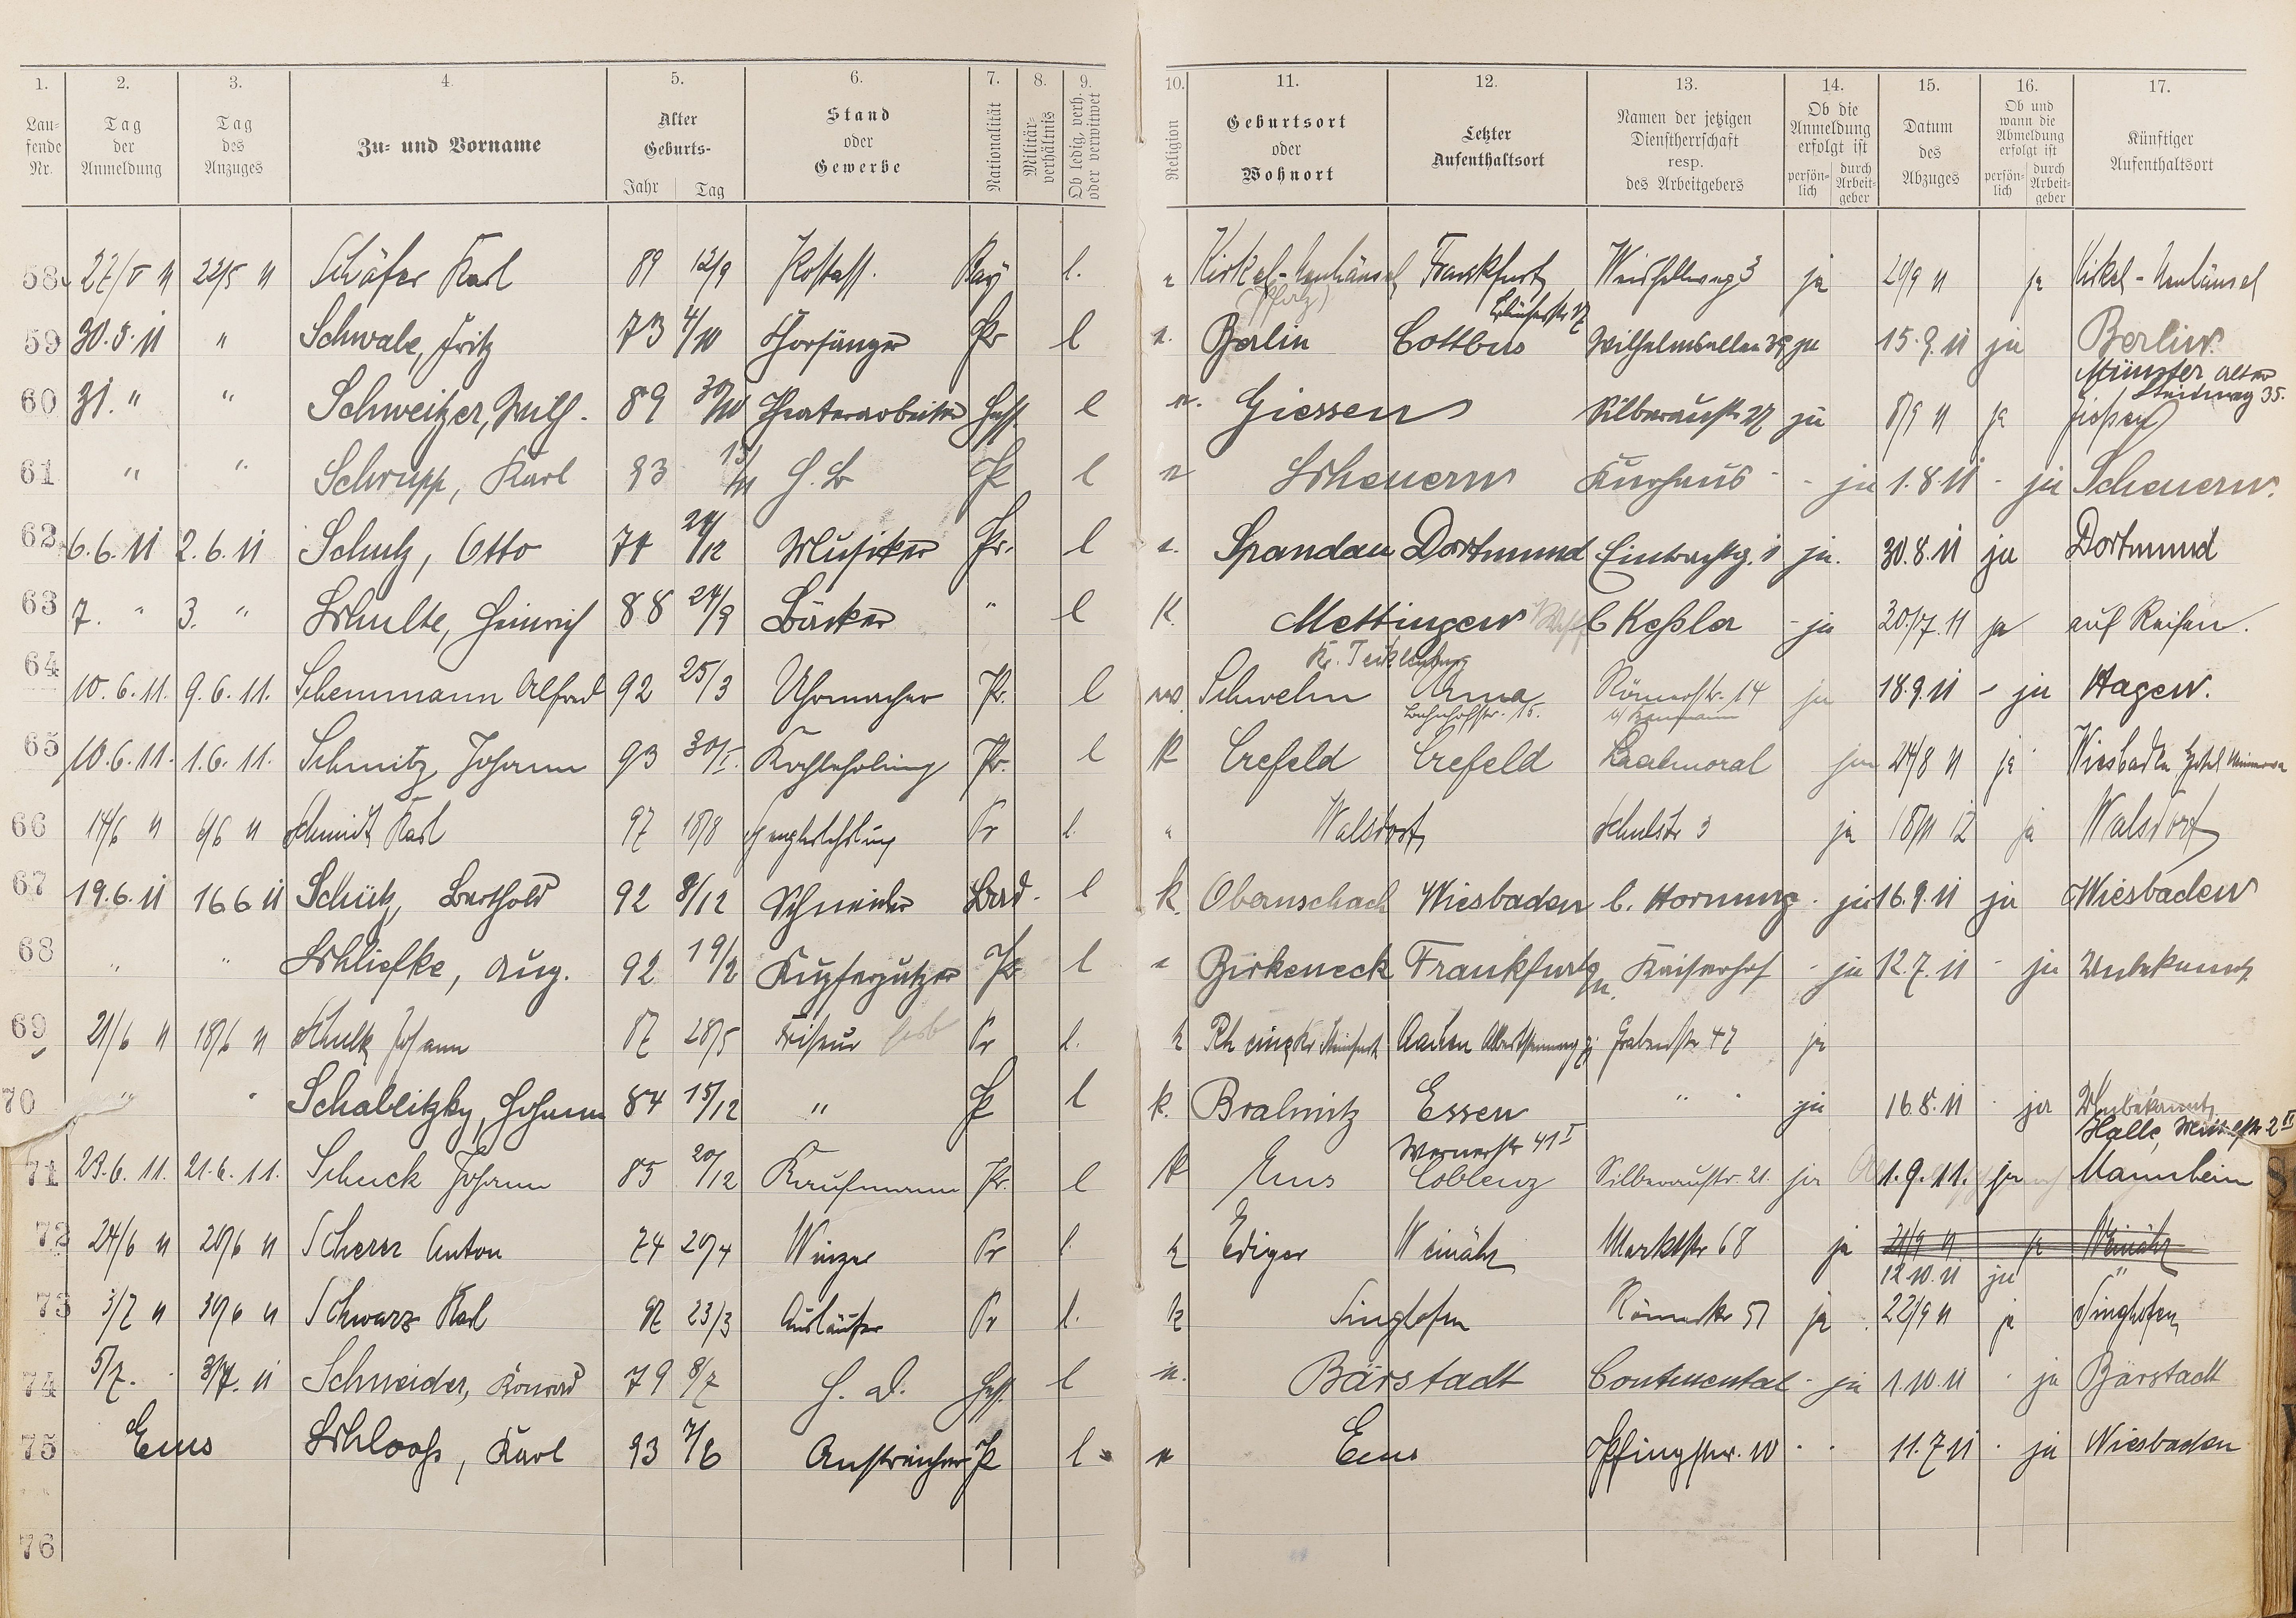 1. 2. 3. 4. 5. 6. 7. 8. 9. 10. 11. 12. 13. 14. 15. 16. 17.
Laufende Nr. Tag der Anmeldung Tag des Anzuges Zu- und Vorname Alter Geburts- Jahr Tag Stand oder Gewerbe Nationalität Militärverhältnis Ob ledig, verh. oder verwitwet Religion Geburtsort oder Wohnort Letzter Aufenthaltsort Namen der jetzigen Dienstherrschaft resp. des Arbeitgebers Ob die Anmeldung erfolgt ist persönlich durch Arbeitgeber Datum des Abzuges Ob und wann die Abmeldung erfolgt ist persönlich durch Arbeitgeber Künftiger Aufenthaltsort
58 27/5 11 22/5 11 Schäfer Karl 89 12/9 Bay l. Kirkel-Neuhäusel Frankfurt 3 ja 20/9 11 ja Kirkel-Neuhäusel
(Pfalz)
59 30.5.11 " Schwabe, Fritz 73 4/10 Chorsänger Pr l Berlin Cottbus Wilhelmsallee 39 ja 15.9.11 ja Berlin
Münster alter Steinweg 35.
60 31. " " Schweitzer, Wilh. 89 30/10 Theaterarbeiter Hess. l Giessen Silberaustr 27 ja 8/9 11 ja Gießen
61 " " Schrupp, Karl 93 H. B Pr l Scheuern Kurhaus - ja 1.8.11 - ja Scheuern.
62 6.6.11 2.6.11 Schulz, Otto 74 24/12 Musiker Pr. l Spandau Dortmund ja. 30.8.11 ja Dortmund
63 7. " 3. " Schulte, Heinrich 88 24/9 Bäcker " l K. Mettingen Westf C Keßler - ja 30/7.11 ja auf Reisen.
Kr. Tecklenburg
64 10.6.11. 9.6.11. Schemmann Alfred 92 25/3 Uhrmacher Pr. l Schwelm Unna Römerstr. 14 ja 18.9.11 - ja Hagen.
Bahnhofstr. 15. b/ Baumann
65 10.6.11. 1.6.11. Schmitz Johann 93 30/5. Kochlehrling Pr. l K Crefeld Crefeld Balmoral ja 24/8 11 ja Wiesbaden Hotel Minerva
66 14/6 11 6/6 11 Schmidt Karl 97 18/8 Pr l. Walsdorf Schulstr 3 ja 18/11 12 ja Walsdorf
67 19.6.11 16 6 11 Schütz, Berthold 92 8/12 Schneider Bad. l k. Obereschach Wiesbaden b. Hornung - ja 16.9.11 ja Wiesbaden
68 " " Schliefke, Aug. 92 19/2 Kupferputzer Pr l Birkeneck Frankfurt Kaiserhof - ja 12.7.11 - ja Unbekannt
69 21/6 11 18/6 11 Schultz Johann 87 28/5 Friseur Pr l. k Aachen Grabenstr 47 ja
70 " " Schablitzky, Johann 84 15/12 " Pr l k. Bralnitz Essen " " ja 16.8.11 - ja Unbekannt
Wernerstr 41 I Halle, 2 II
71 23.6.11. 21.6.11. Schuck Johann 85 20/12 Kaufmann Pr. l K Ems Coblenz Silberaustr. 21. ja 1.9.11. ja Mannheim
72 24/6 11 20/6 11 Scherer Anton 74 20/4 Winzer Pr l. k Ediger Weinähr Marktstr 68 ja 21/9 11 ja Weinähr
12.10.11 ja "
73 3/7 11 30/6 11 Schwarz Karl 97 23/3 Ausläufer Pr l. k Singhofen Römerstr 51 ja 22/9 11 ja Singhofen
74 5/7. 3/7. 11 Schneider, Konrad 79 8/7 H. D. Hess. l Bärstadt Continental - ja 1.10.11 - ja Bärstadt
75 Ems Schlooß, Karl 93 7/6 Anstreicher Pr l Ems Pfingstw. 10 - - 11.7.11 - ja Wiesbaden
76